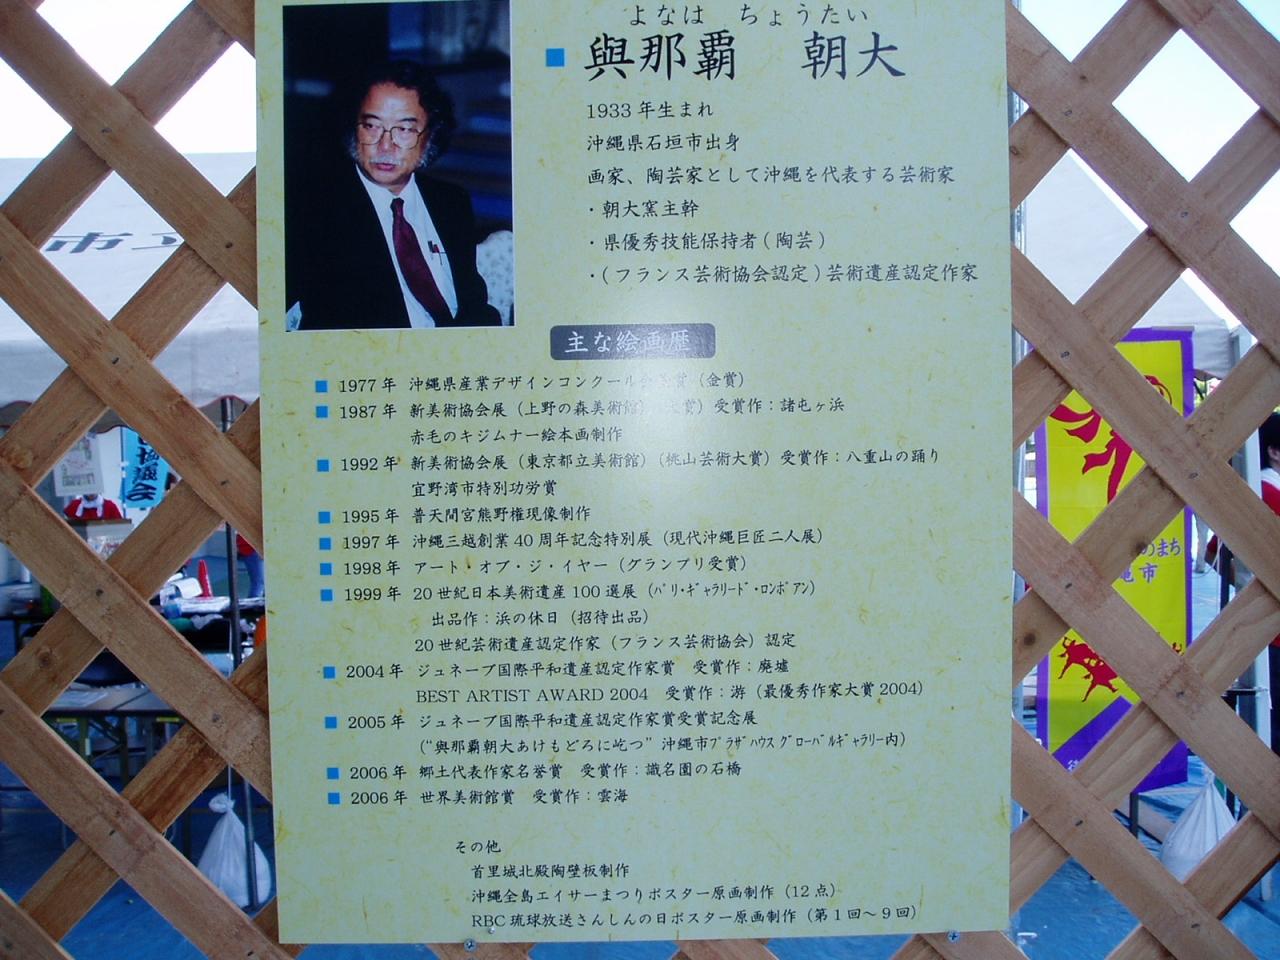 よなは ちょうたい
與那覇 朝大
1933年生まれ
沖縄県石垣市出身
画家、陶芸家として沖縄を代表する芸術家
・朝大窯主幹
・県優秀技能保持者(陶芸)
・(フランス芸術協会認定)芸術遺産認定作家
主な絵画歴
1977年 沖縄県産業デザインコンクール 賞(金賞)
1987年 新美術協会展(上野の森美術館) 賞)受賞作:諸屯ヶ浜
赤毛のキジムナー絵本画制作
1992年 新美術協会展(東京都立美術館)(桃山芸術大賞)受賞作:八重山の踊り
宜野湾市特別功労賞
1995年 普天間宮熊野権現像制作
1997年 沖縄三越創業40周年記念特別展(現代沖縄巨匠二人展)
1998年 アート・オブ・ジ・イヤー(グランプリ受賞)
1999年 20世紀日本美術遺産100選展(パリ・ギャラリード・ロンボアン)
出品作:浜の休日(招待出品)
20世紀芸術遺産認定作家(フランス芸術協会)認定
2004年 ジュネーブ国際平和遺産認定作家賞 受賞作:廃墟
BEST ARTIST AWARD 2004 受賞作:游(最優秀作家大賞2004)
2005年 ジュネーブ国際平和遺産認定作家賞受賞記念展
(“與那覇朝大あけもどろに屹つ” 沖縄市プラザハウスグローバルギャラリー内)
2006年 郷土代表作家名誉賞 受賞作:識名園の石橋
2006年 世界美術館賞 受賞作:雲海
その他
首里城北殿陶壁板制作
沖縄全島エイサーまつりポスター原画制作(12点)
RBC琉球放送さんしんの日ポスター原画制作(第1回〜9回)
市立
協議会
のまち
市